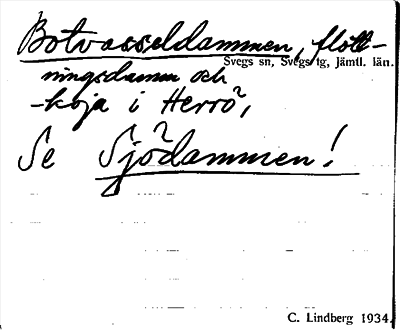 Botvasseldammen, flott-
Svegs sn, Svegs tg, Jämtl. län.
ningsdamm och
-koja i Herrö,
Se Sjödammen!
C. Lindberg 1934.